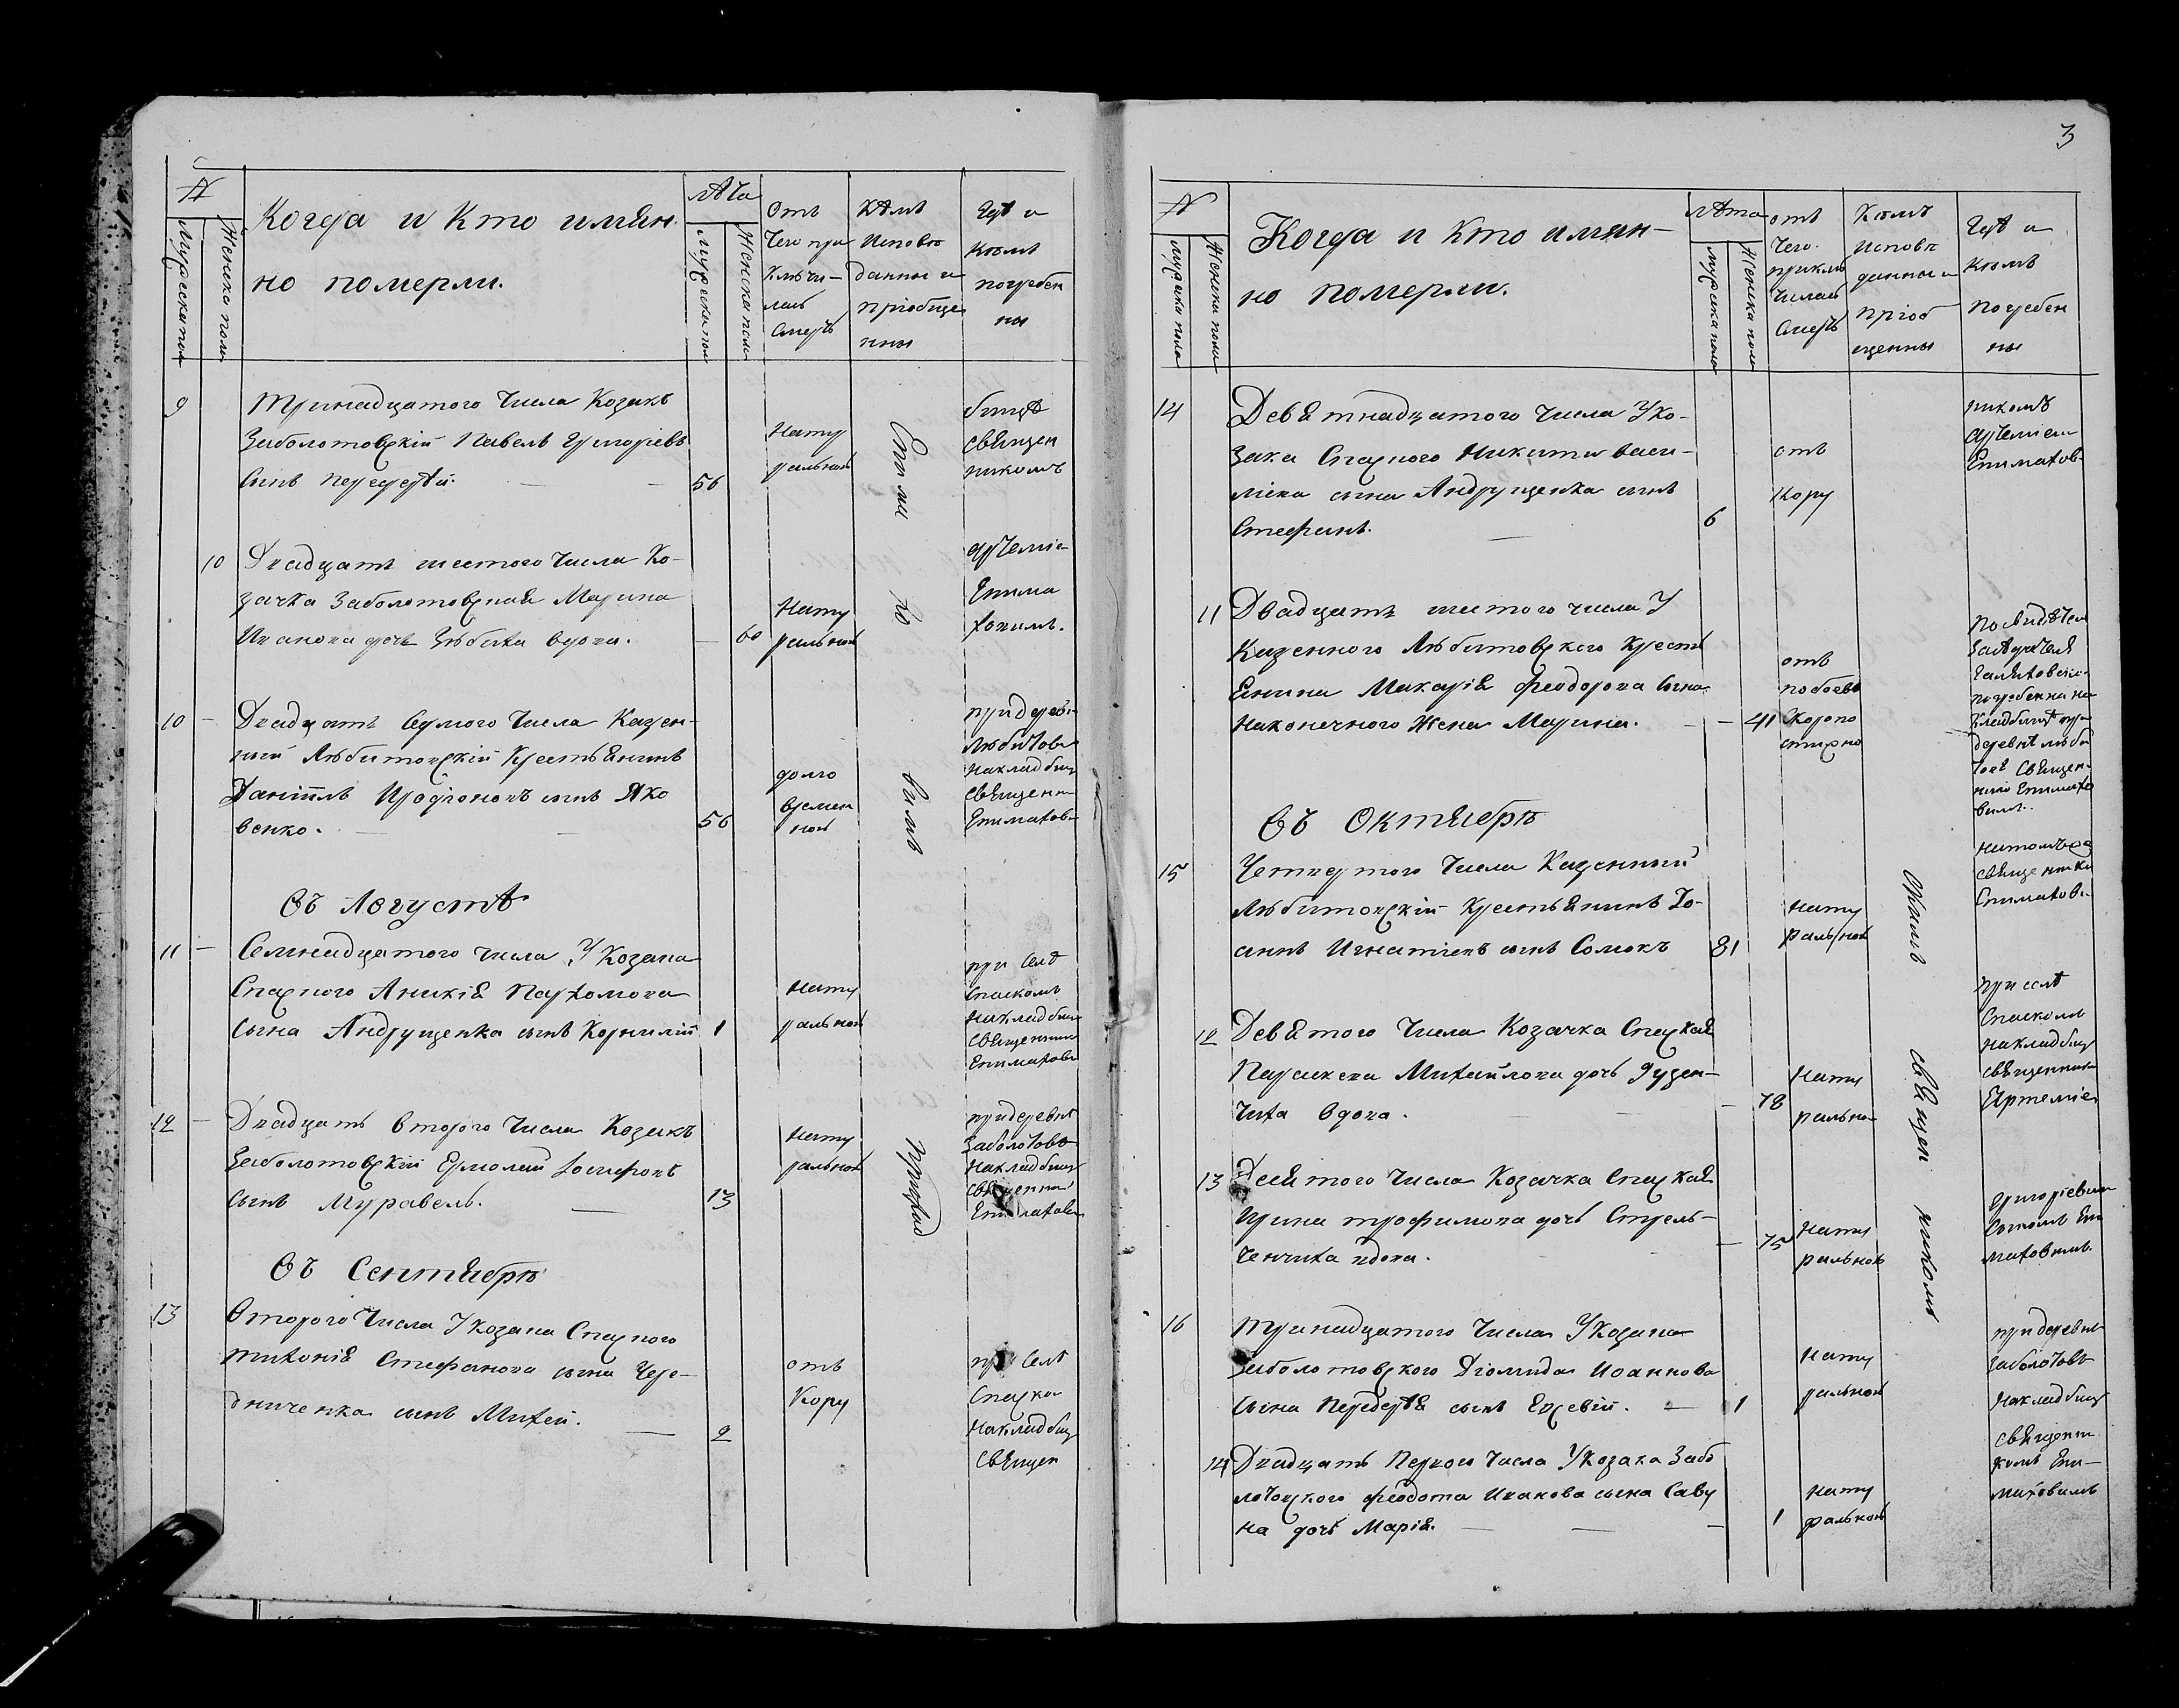 3
№
Мужеска пола
Женска пола
Когда и Кто имян
но померли.
лѣта
Мужеска пол
Женска пол
Отъ
Чего при
Ключи-
лась
Смерть
Кѣмъ
Исповѣ
данны и
пріобще
нны
Гдѣ и
Кѣмъ
погребен
ны
9
Тринадцатого Числа Козакъ
Заболотовскій Павелъ Григоріевъ
Сынъ Передерѣй.
56
Нату
ральной
бищѣ
священ
никомъ
10
Двадцать шестого Числа Ко-
зачка Заболотовская Марина
Иванова дочь Зюбиха вдова.
60
Нату
ральной
Артеміе
Епима
ховимъ.
10
Двадцать Седмого Числа Казен-
ный Любитовскій Крестьянинъ
Даніилъ Иродіоновъ сынъ Яко
венко.
56
долго
времен
ной
при деревн
Любитов
На кладбищ
священни
Епимахов
Въ Августѣ
11
Семнадцатого числа У Козака
Спаского Аникія Пархомова
Сына Андрущенка сынъ Корнилій
1
Нату
ральной
при Селѣ
Спаскомъ
На кладбищ
священник
Епимахов
12
Двадцать второго Числа Козакъ
Заболотовскій Ермолай Іосифовъ
Сынъ Муравель.
13
Нату
ральной
при деревнѣ
Заболотовѣ
На кладбищ
священни
Епимахов
Въ Сентябрѣ
13
Второго Числа У Козака Спаского
Тихонія Стефанова сына Чере-
дниченка сынъ Михей.
2
отъ
Кору
при Селѣ
Спаско
На кладбищ
Священ
приходс
№
Мужеска пола
Женска пола
Когда и Кто имян-
но померли.
лѣта
Мужеска пола
Женска пола
отъ
Чего
приклю
чилась
Смерть
Кѣмъ
исповѣ
данны и
пріоб
щенны
Гдѣ и
Кѣмъ
Погребен
ны
14
Девятнадцатого Числа У Ко-
зака Спаского Никиты Васи-
лієва сына Андрущенка сынъ
Стефанъ.
6
отъ
Кору
никомъ
Артеміем
Епимахов
11
Двадцать шестого числа У
Казенного Любитовского Кресть
янина Макарія Феодорова Сына
Наконечного Жена Марина.
41
отъ
побоевъ
Скоропо
стижно
погребенна на
Кладбищѣ при
деревнѣ Люби
товѣ Священ-
нико Епимахо
вимъ.
Въ Октябрѣ
15
Четвертого Числа Казенный
Любитовскій Крестьянинъ Іо-
аннъ Игнатіевъ сынъ Сомокъ
81
Нату
ральной
священнико
Епимахов
12
Девятого Числа Козачка Спаская
Параскева Михайлова дочь Руден-
чиха Вдова.
78
Нату
рально
при селѣ
Спаскомъ
на кладбищ
священник
Артеміе
13
Десятого Числа Козачка Спаская
Ирина Трофимова дочь Стрель-
ченчиха вдова.
75
Нату
ральной
Григоріевим
Сыномъ Епи
маховимъ.
16
Тринадцатого Числа У Козака
Заболотовского Діомида Иоаннова
Сына Передерѣя сынъ Евсевій.
1
Нату
ральной
при деревнѣ
Заболотовѣ
На кладбищ
священни
комъ Епи-
маховимъ
14
Двадцать Первого Числа У Козака Забо
лотовского Феодота Иванова сына Саву
на дочь Марія.
1
Нату
ральной
священ
никомъ